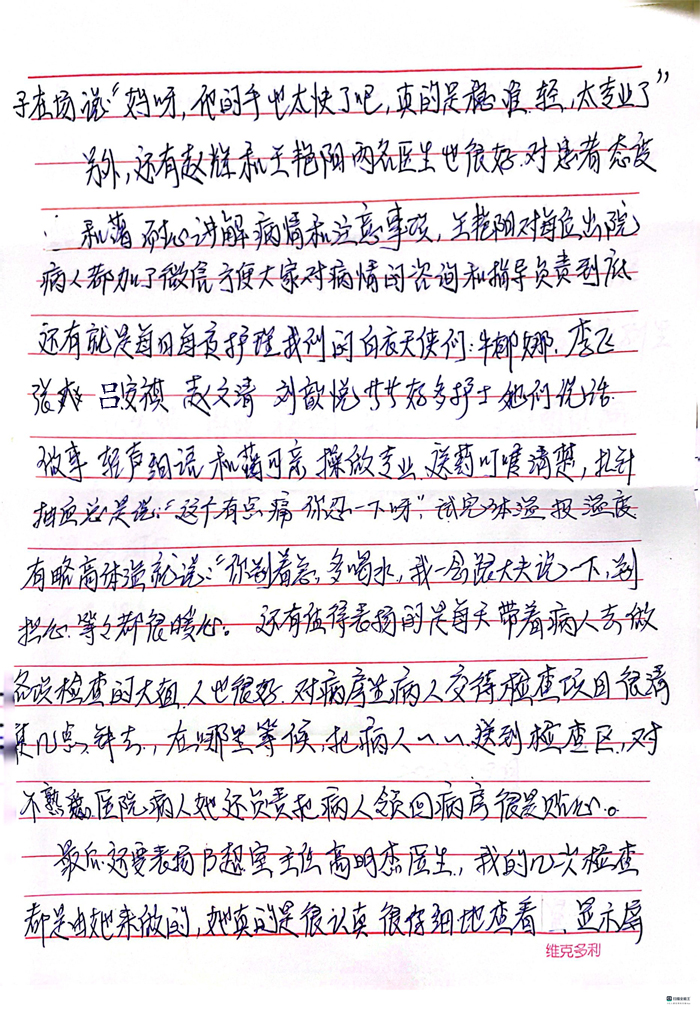 子在场说“妈呀，他的手也太快了吧，真的是稳 准 轻，太专业了”
另外，还有赵辉和王艳阳两名医生也很好.对患者态度
和蔼 耐心讲解病情和注意事项，王艳阳对每位出院
病人都加了微信方便大家对病情的咨询和指导负责到底
还有就是每日每夜护理我们的白衣天使们：牛娜娜.李飞
张爽 吕安祺 赵文清 刘歆悦 好多护士她们说话
做事 轻声细语 和蔼可亲 操做专业.送药叮嘱清楚，扎针
抽血总是说：“这个有点痛 你忍一下呀”，试完体温 报温度
有略高体温就说：“你别着急，多喝水，我一会跟大夫说一下，别
担心.等等都很暖心。 还有值得表扬的是每天带着病人去做
各项检查的大姐.人也很好.对病房里病人交待检查项目很清
几点钟去，在哪里等候，把病人一一送到检查区，对
不熟悉医院病人她还负责把病人领回病房很是贴心。
最后还要表扬B超室主任高明杰医生，我的几次检查
都是由她来做的，她真的是很认真 很仔细地查看 显示屏
维克多利